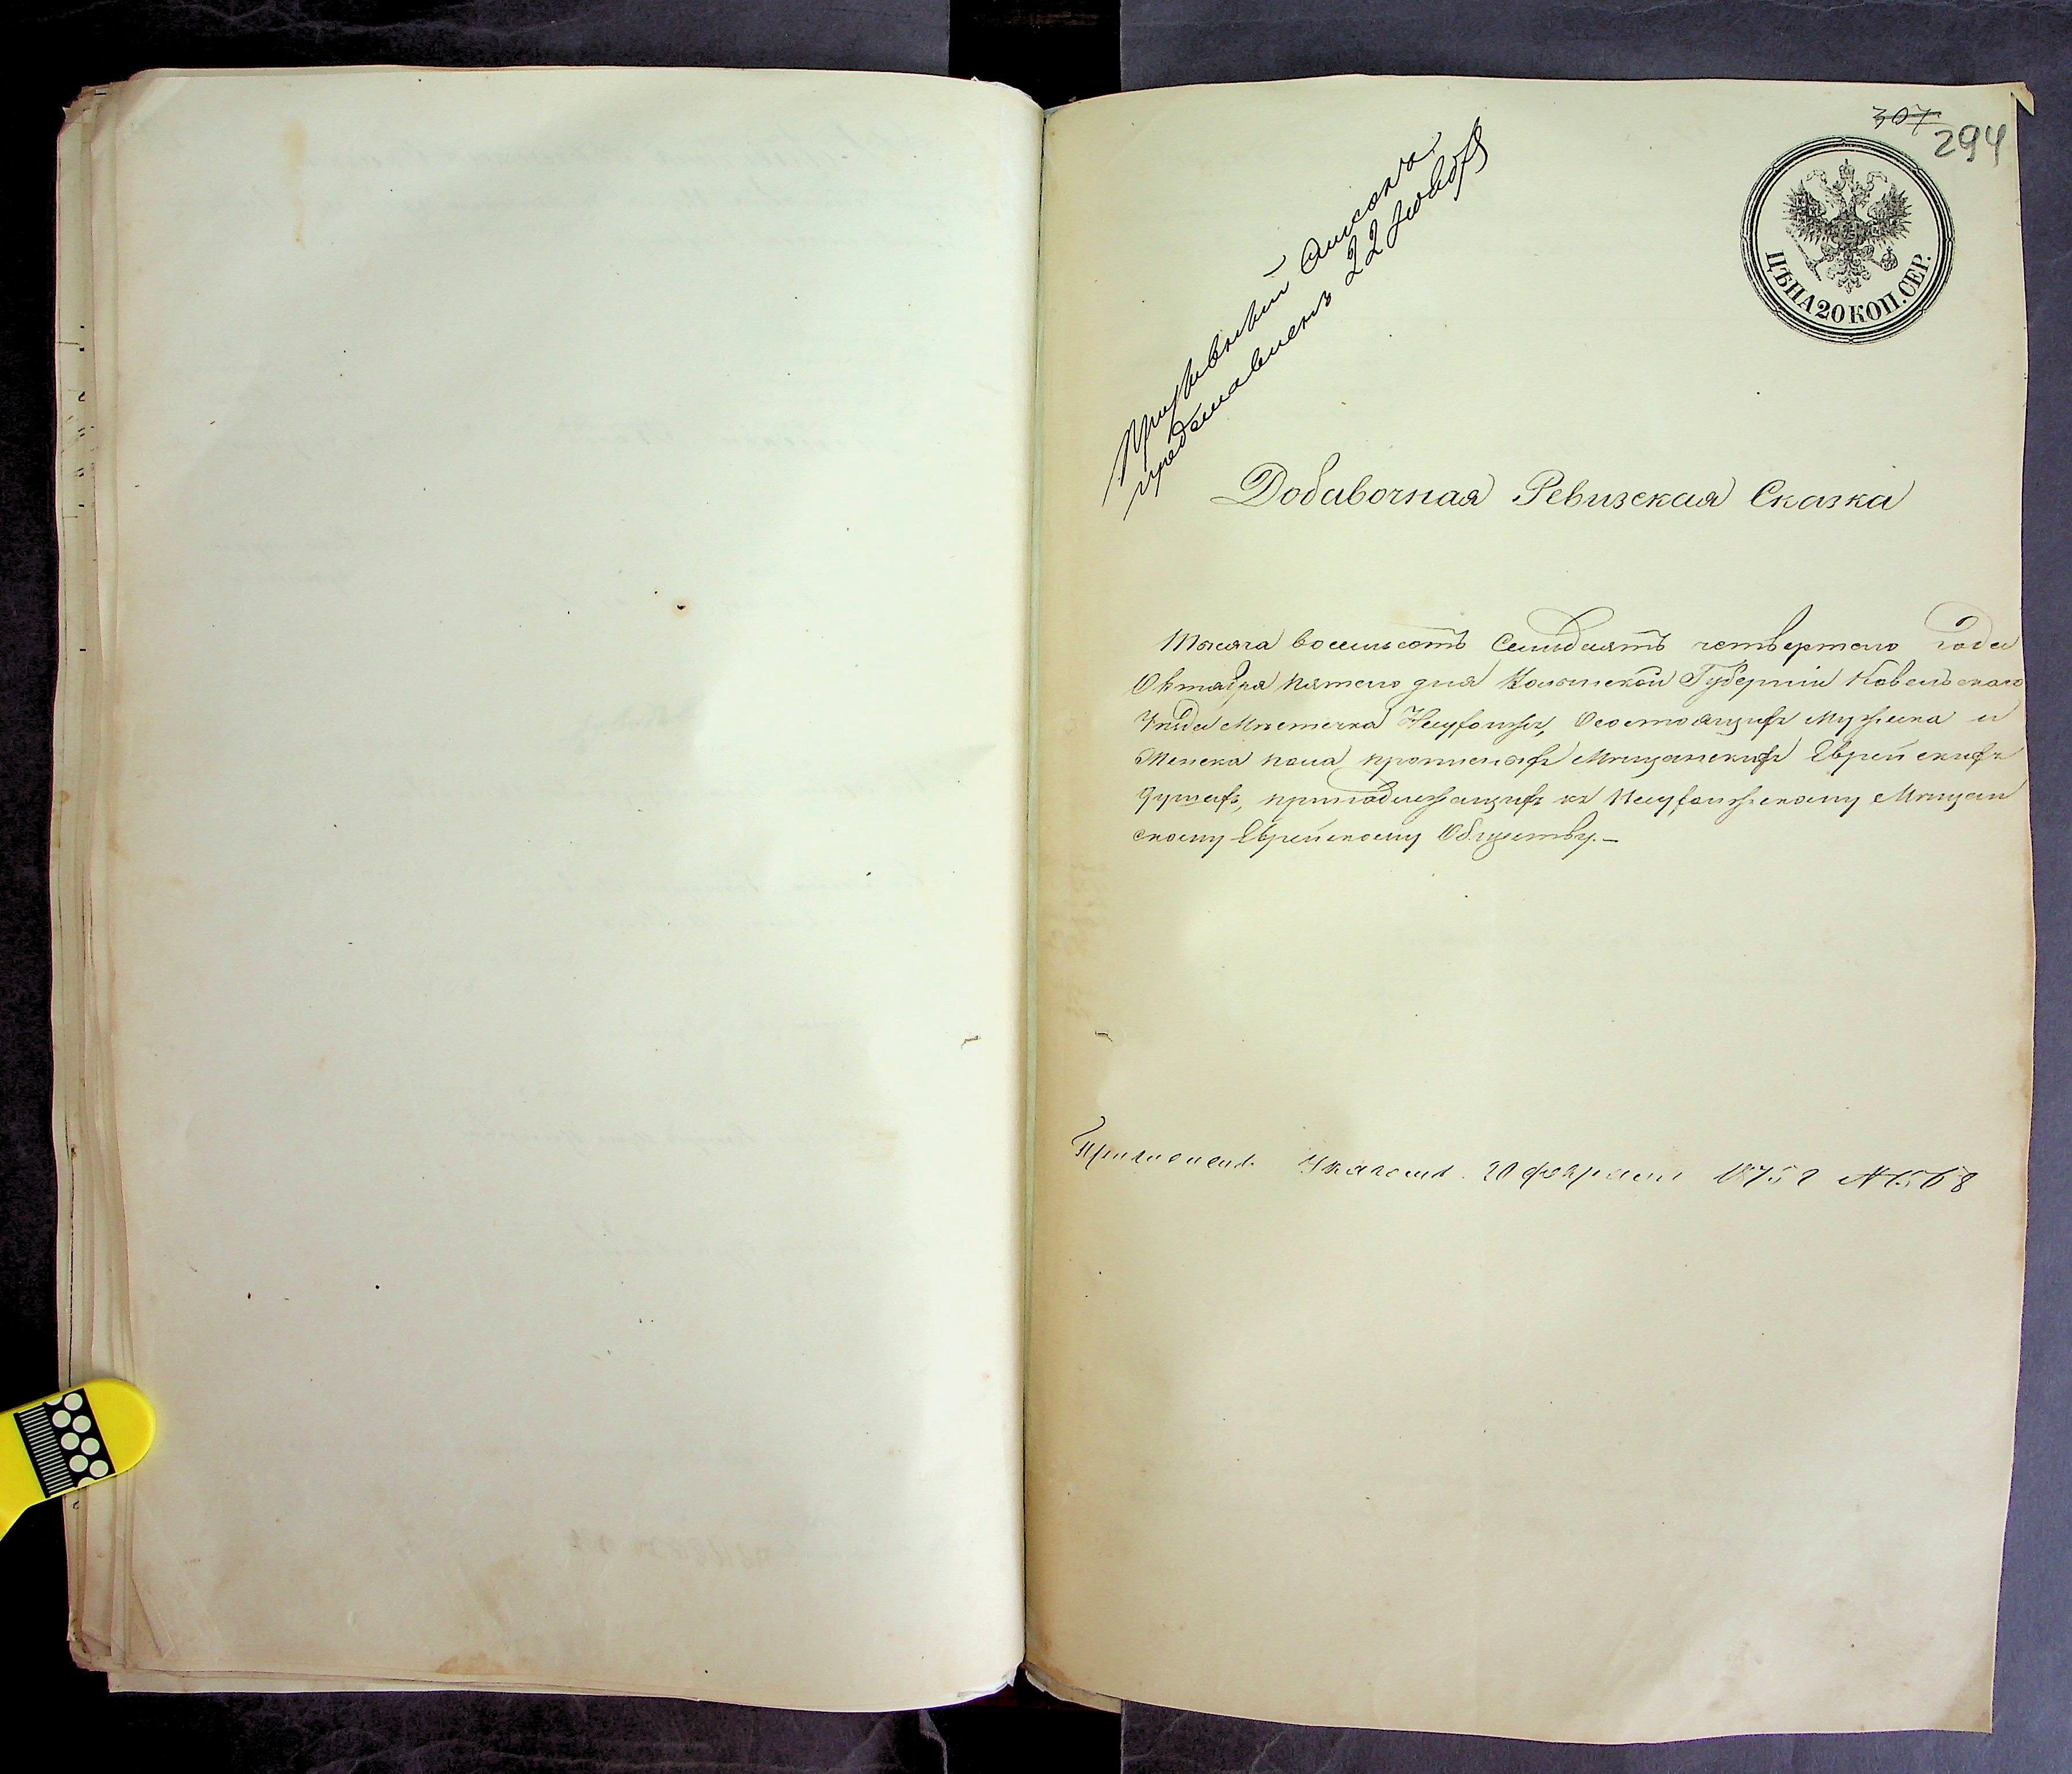 307
294
ЦѢНА 20 КОП. СЕР.
Призывный списокъ
представленъ 22 Ноября
Добавочная Ревизская Сказка
Тысяча восемьсотъ Семьдесятъ четвертаго года
Октября пятого дня Волынской Губерніи Ковельскаго
Уѣзда Мѣстечка Несухоижъ, О состоящихъ мужеска и
Женска пола мѣщанскихъ Еврейскихъ
душахъ, принадлежащихъ къ Несухоижскому Мѣщан
скому Еврейскому Обществу.—
Указомъ 20 февраля 1875 г №1568